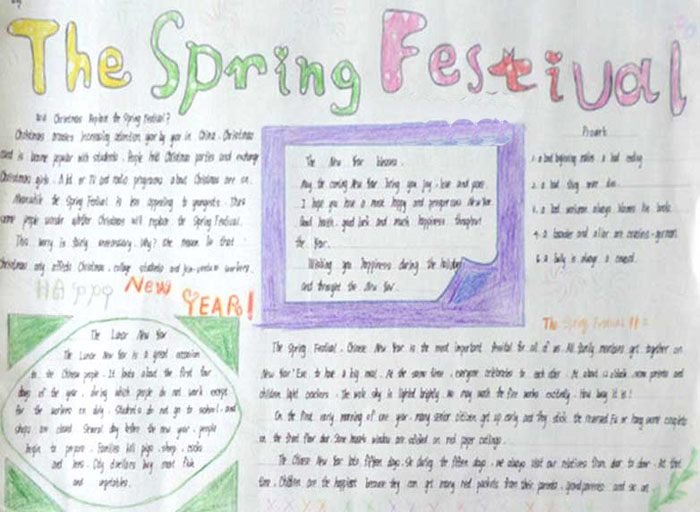 The Spring Festival
Will Christmas Replace the Spring Festival?
Christmas arouses increasing attention year by year in China. Christmas
card is become popular with students. People hold Christmas parties and exchange
Christmas gifts. A lot of TV and radio programs about Christmas are on.
Meanwhile the Spring Festival is less appealing to youngsters. Thus
some people wonder whether Christmas will replace the Spring Festival.
This worry is fairly unnecessary. Why? One reason is that
Christmas only affects Christmas, college students and workers.
Happy New YEAR!
The New Year
May the coming New Year bring you joy, love and peace.
I hope you have a most happy and prosperous New Year.
Good health, good luck and much happiness throughout
the Year.
Wishing you happiness during the holidays
and throught the New Year.
Proverb
1. a bad beginning makes a bad ending
2. a bad thing never dies.
3. a bad workman always blames his tools.
4. a and a liar are
5. a bully is always a coward.
The Lunar New Year
The Lunar New Year is a great occasion
to the Chinese people. It lasts about the first four
days of the year, during which people do not work except
for the workers on duty. Students do not go to school, and
shops are closed. Several day before the new year, people
begin to prepare. Families kill pigs, sheep, cocks
and hens. City dwellers buy meat fish
and vegetables.
The Spring Festival
The Spring Festival, Chinese New Year is the most important festival for all of us. All family members get together on
New Year' Eve to have a big meal. At the same time, everyone celebrates to each other. At about 12 o'clock, some parents and
children light crackers. The whole sky is lighted brightly. We may watch the fire works excitedly. How busy it is!
On the first early morning of one year, many senior citizen get up early and they stick the reversed Fu or hang some couplets
on the front door. Some house's window are on red paper cuttings.
The Chinese New Year lasts fifteen days. So during the fifteen days, we always visit our relatives from door to door. At that
time, children are the happiest because they can get many red packets from their parents, grandparents and so on.